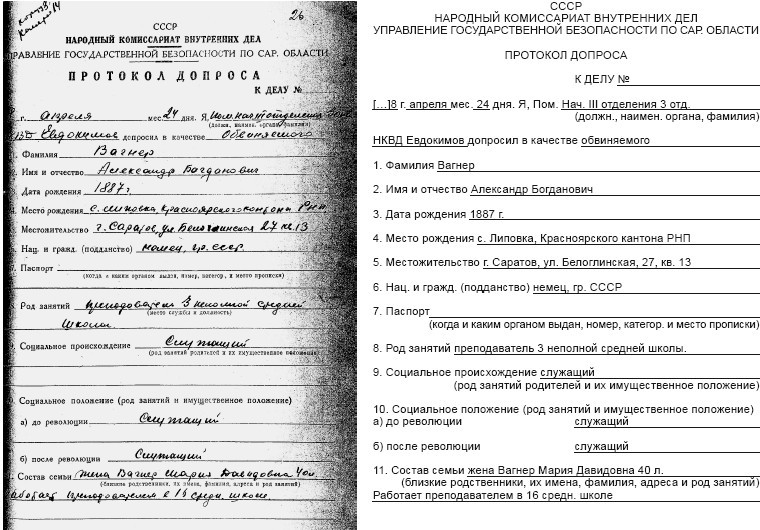 26
СССР
НАРОДНЫЙ КОМИССАРИАТ ВНУТРЕННИХ ДЕЛ
УПРАВЛЕНИЕ ГОСУДАРСТВЕННОЙ БЕЗОПАСНОСТИ ПО САР. ОБЛАСТИ
ПРОТОКОЛ ДОПРОСА
К ДЕЛУ №
г. апреля мес. 24 дня. Я,
(должн., наимен. органа, фамилия)
Евдокимов допросил в качестве обвиняемого
1. Фамилия Вагнер
2. Имя и отчество Александр Богданович
Дата рождения 1887 г.
4. Место рождения с. Липовка, Красноярского кантона РНП
5. Местожительство г. Саратов, ул. Белоглинская 27 кв. 13
6. Нац. и гражд. (подданство) немец, гр. СССР
7. Паспорт
(когда и каким органом выдан, номер, категор. и место прописки)
8. Род занятий преподаватель 3 неполной средней
(место службы и должность)
школы.
9. Социальное происхождение служащий
(род занятий родителей и их имущественное положение)
Социальное положение (род занятий и имущественное положение)
а) до революции служащий
б) после революции Служащий
Состав семьи жена Вагнер Мария Давидовна 40 л.
(близкие родственники, их имена, фамилия, адреса и род занятий)
работает преподавателем в 16 средн. школе.
СССР
НАРОДНЫЙ КОМИССАРИАТ ВНУТРЕННИХ ДЕЛ
УПРАВЛЕНИЕ ГОСУДАРСТВЕННОЙ БЕЗОПАСНОСТИ ПО САР. ОБЛАСТИ
ПРОТОКОЛ ДОПРОСА
К ДЕЛУ №
[...]8 г. апреля мес. 24 дня. Я, Пом. Нач. III отделения 3 отд.
(должн., наимен. органа, фамилия)
НКВД Евдокимов допросил в качестве обвиняемого
1. Фамилия Вагнер
2. Имя и отчество Александр Богданович
3. Дата рождения 1887 г.
4. Место рождения с. Липовка, Красноярского кантона РНП
5. Местожительство г. Саратов, ул. Белоглинская, 27, кв. 13
6. Нац. и гражд. (подданство) немец, гр. СССР
7. Паспорт
(когда и каким органом выдан, номер, категор. и место прописки)
8. Род занятий преподаватель 3 неполной средней школы.
9. Социальное происхождение служащий
(род занятий родителей и их имущественное положение)
10. Социальное положение (род занятий и имущественное положение)
а) до революции служащий
б) после революции служащий
11. Состав семьи жена Вагнер Мария Давидовна 40 л.
(близкие родственники, их имена, фамилия, адреса и род занятий)
Работает преподавателем в 16 средн. школе